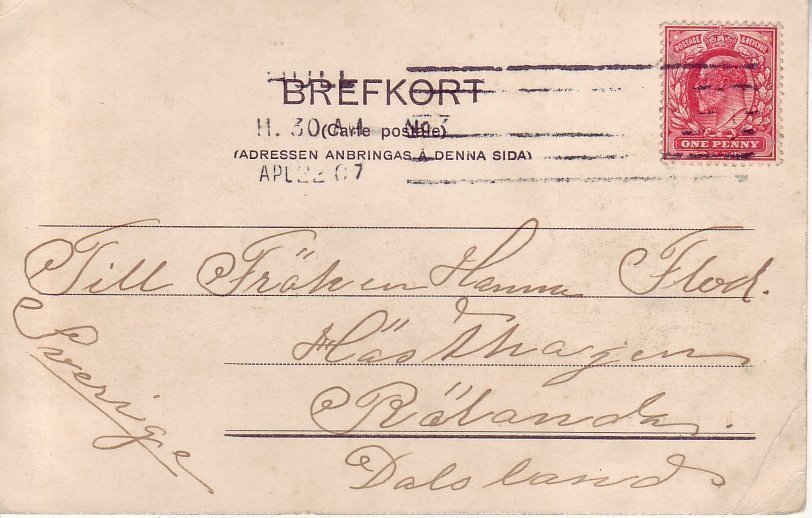 HULL
BREFKORT
11.30 AM No. 3
(Carte postale)
(ADRESSEN ANBRINGAS Å DENNA SIDA)
APL 22 07
POSTAGE & REVENUE
ONE PENNY
Till Fröken Hanna Flod.
Hästhagen
Rölanda.
Dalsland
Sverige